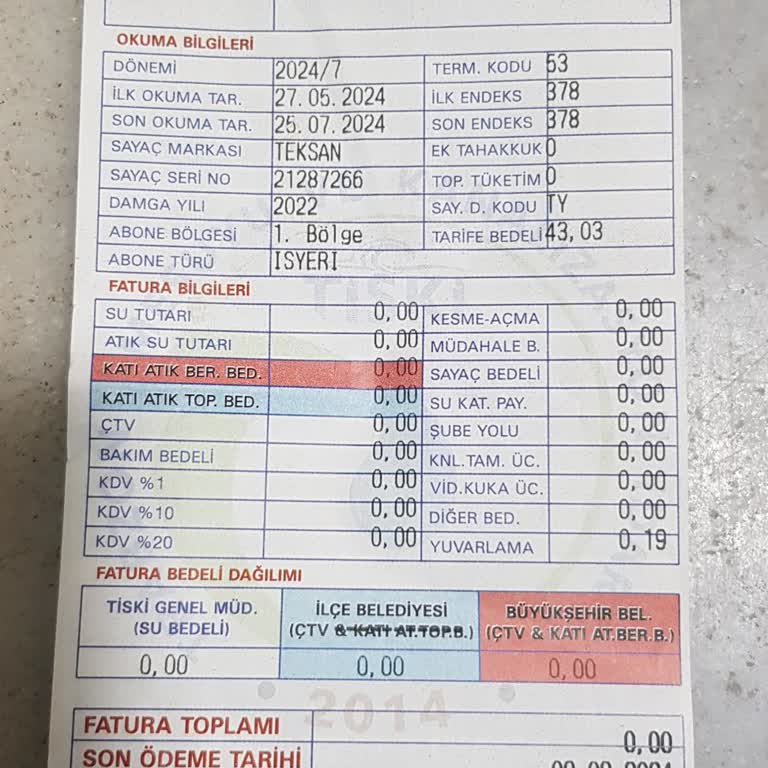 OKUMA BİLGİLERİ
DÖNEMİ 2024/7 TERM. KODU 53
İLK OKUMA TAR. 27.05.2024 İLK ENDEKS 378
SON OKUMA TAR. 25.07.2024 SON ENDEKS 378
SAYAÇ MARKASI TEKSAN EK TAHAKKUK 0
SAYAÇ SERİ NO 21287266 TOP. TÜKETİM 0
DAMGA YILI 2022 SAY. D. KODU TY
ABONE BÖLGESİ 1. Bölge TARİFE BEDELİ 43,03
ABONE TÜRÜ ISYERI
FATURA BİLGİLERİ
SU TUTARI 0,00 KESME-AÇMA 0,00
ATIK SU TUTARI 0,00 MÜDAHALE B. 0,00
KATI ATIK BER. BED. 0,00 SAYAÇ BEDELİ 0,00
KATI ATIK TOP. BED. 0,00 SU KAT. PAY. 0,00
ÇTV 0,00 ŞUBE YOLU 0,00
BAKIM BEDELİ 0,00 KNL.TAM. ÜC. 0,00
KDV %1 0,00 VİD.KUKA ÜC. 0,00
KDV %10 0,00 DİĞER BED. 0,00
KDV %20 0,00 YUVARLAMA 0,19
FATURA BEDELİ DAĞILIMI
TİSKİ GENEL MÜD. İLÇE BELEDİYESİ BÜYÜKŞEHİR BEL.
(SU BEDELİ) (ÇTV & KATI AT.TOP.B.) (ÇTV & KATI AT.BER.B.)
0,00 0,00 0,00
2014
FATURA TOPLAMI 0,00
SON ÖDEME TARİHİ